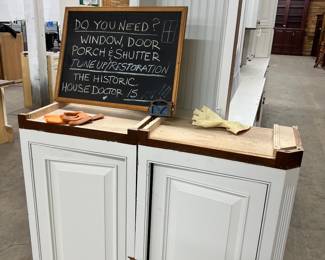 DO YOU NEED?
WINDOW, DOOR
PORCH & SHUTTER
TUNE UP/RESTORATION
THE HISTORIC
HOUSE DOCTOR IS